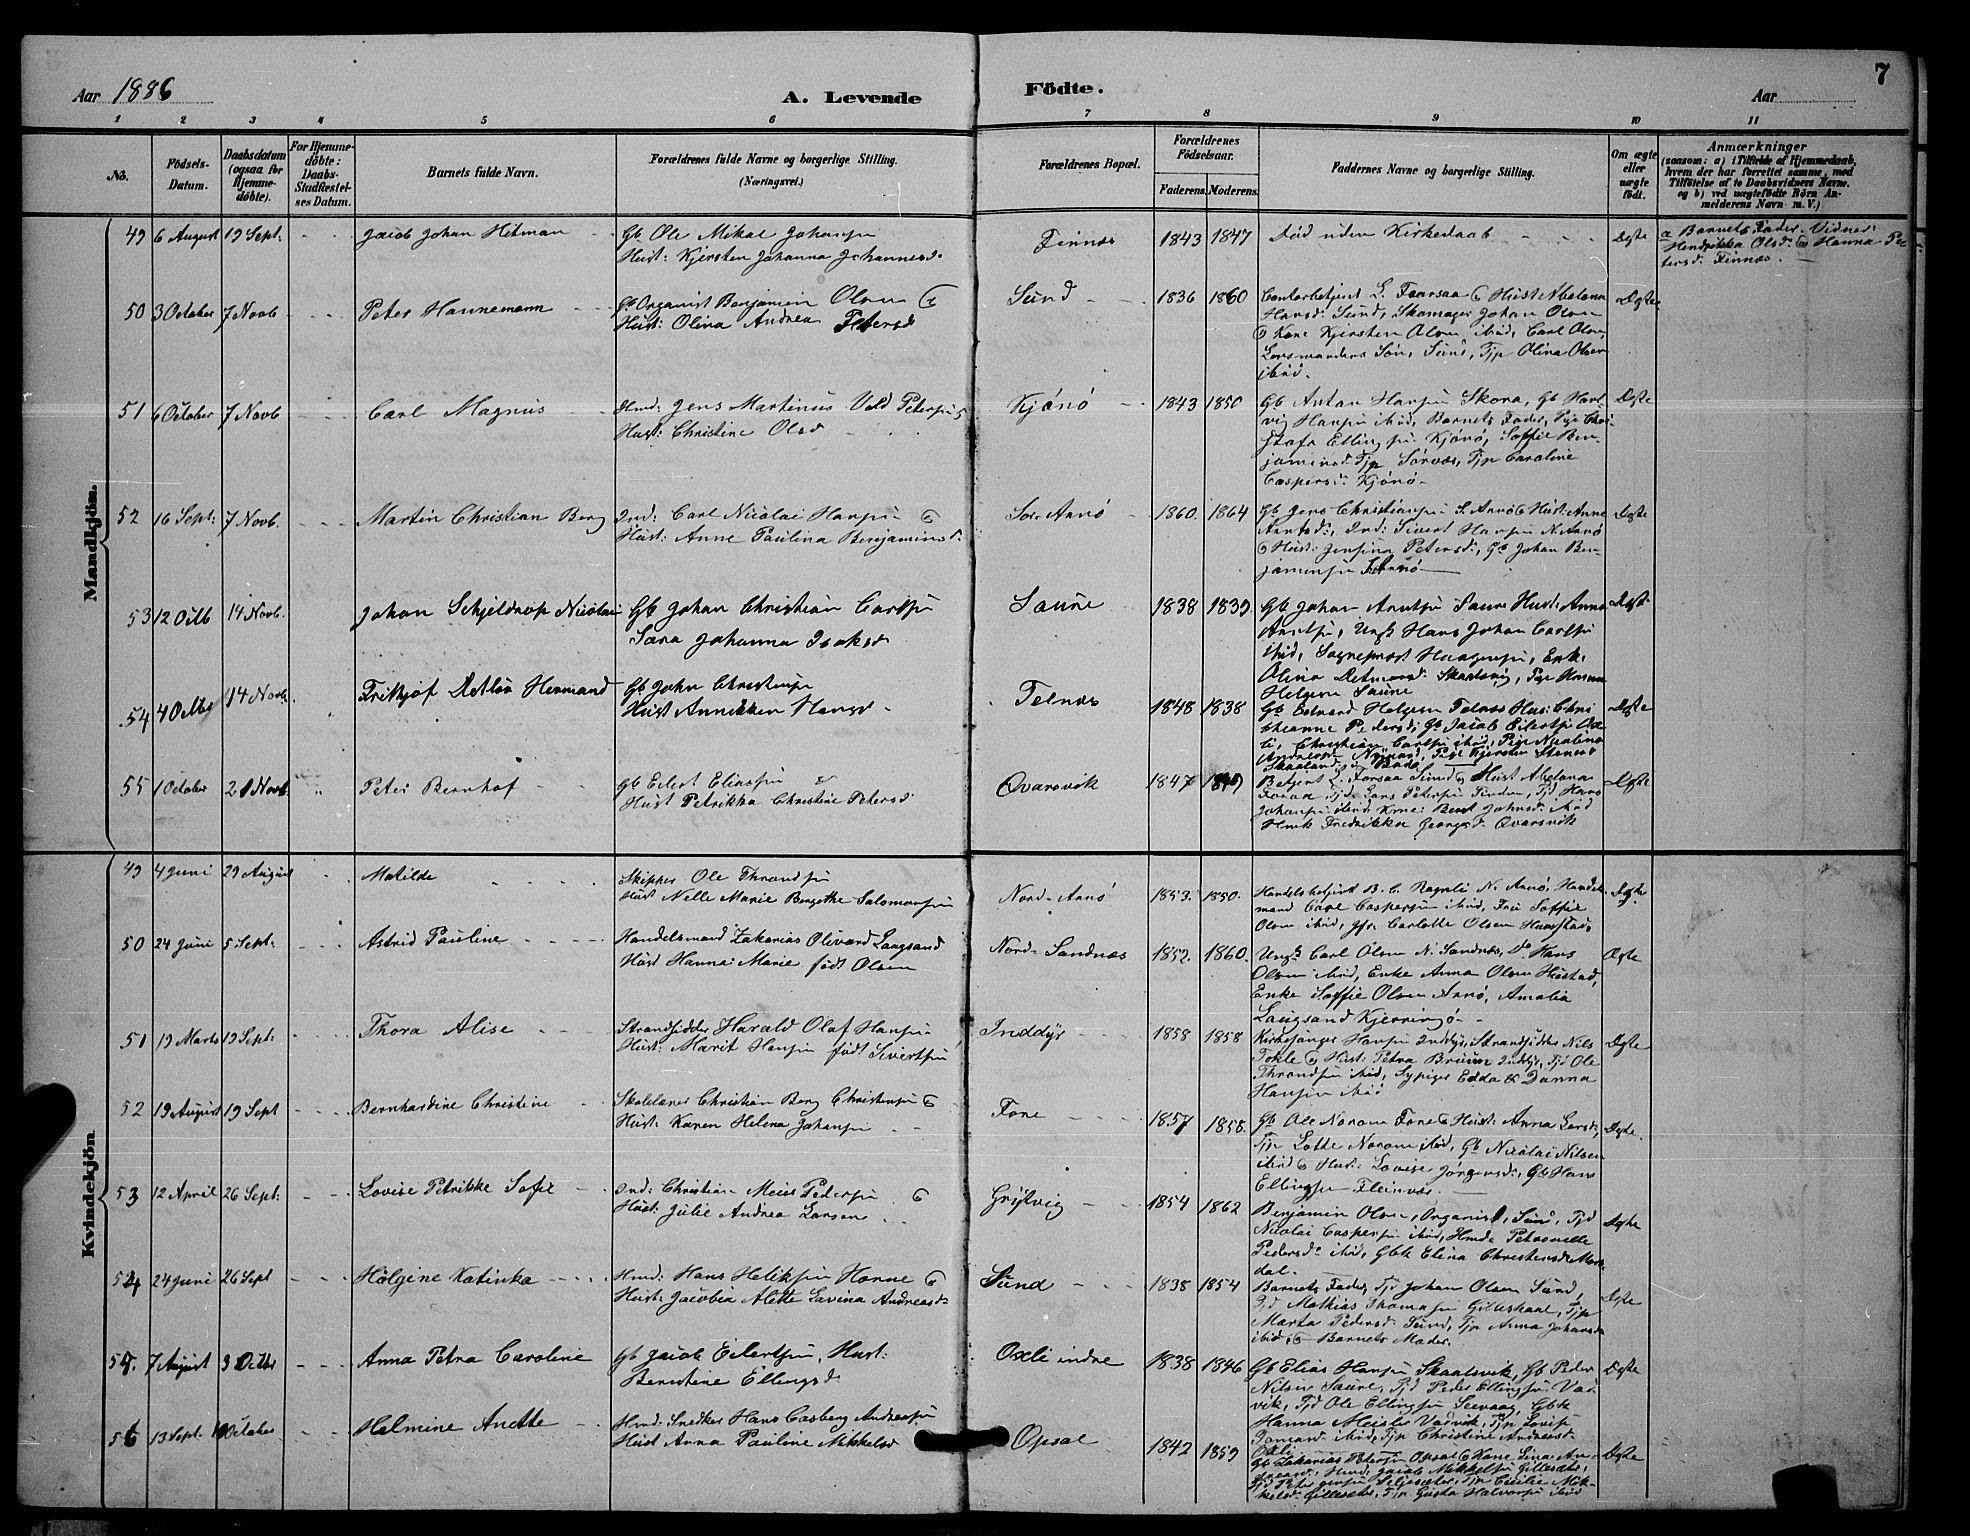 Aar 1886
A. Levende
Födte.
Aar
7
1 2 3 4 5 6 7 8 9 10 11
No.
Födsels-
Datum.
Daabsdatum
(ogsaa for
Hjemme-
döbte).
For Hjemme-
döbte:
Daabs-
Stadfæstel-
ses Datum.
Barnets fulde Navn.
Forældrenes fulde Navne og borgerlige Stilling.
(Næringsvei.)
Forældrenes Bopæl.
Forældrenes
Födselsaar.
Faderens. Moderens.
Faddernes Navne og borgerlige Stilling.
Om ægte
eller
uægte
födt.
Anmærkninger
(saasom: a) i Tilfælde af Hjemmedaab,
hvem der har forrettet samme, med
Tilföielse af to Daabsvidners Navne.
og b) ved uægtefödte Börn An-
melderens Navn m. V.)
Mandkjön.
49 6 August 19 Sept: Jacob Johan Hitman Gb Ole Mikal Johansen
Hust: Kjersten Johanna Johannesd.
Finnæs 1843 1847 Död uden Kirkedaab Ægte
a Barnets Fader. Vidner:
Hendrikka Olsd: Hanna Pe
tersd: Finnæs.
50 3 October 7 Novb Peter Hannemann Gb Organist Benjamin Olsen
Hust: Olina Andrea Petersd
Sund 1836 1860 L. Faarsaa Hust Abelona
Hansd: Sund, Skomager Johan Olsen
Kone Kjersten Olsen ibid, Carl Olsen,
Lensmandens Sön, Sund, Tjp Olina Olsen
ibid.
Ægte
51 6 October 7 Novb Carl Magnus Hmd: Jens Martinus Vold Petersen
Hust: Christine Olsd
Kjönö 1843 1850 Gb Anton Hansen Skora, Gb Hart
vig Hansen ibid, Barnets Fader, Pige Chri
stofa Ellingsen Kjönö, Soffie Ben-
jaminsd: Tjp Sörnæs, Tjp Caroline
Caspersd: Kjönö
Ægte
52 16 Sept: 7 Novb. Martin Christian Berg Ind: Carl Nicolai Hansen
Hust: Anne Paulina Benjaminsd.
Sör Arnö 1860. 1864 Gb Jens Christiansen S. Arnö Hust: Anne
Arntsd:, Ind: Sivert Hansen N. Arnö
Hust: Jensina Petersd:, Gb Johan Ben-
jaminsen
Ægte
53 12 Octb 14 Novb. Johan Schjeldrop Nicolai Gb Johan Christian Carlsen
Sara Johanna Isaksd
Saure 1838 1839 Gb Johan Arntsen Saure Hust: Anna
Arntsen, Ungk Hans Johan Carlsen
ibid, Sogneprest Haagensen, Enke
Olina Detmersd: Skaalsvig, Pige Hanna
Helgesen Saure
Ægte
54 4 Octbr 14 Novb. Fritkjof Detlör Hermand Gb John Christensen
Hust Annikken Hansd
Telnæs 1848 1838 Gb Edvard Helgesen Telnæs Hust: Chri
stianne Pedersd:, Gb Jacob Eilertsen Ox
li, Christian Carlsen ibid, Pige Nicoline
Ægte
55 1 October 21 Novb Peter Bernhof Gb Eilert Eliassen
Hust Petrikka Christine Petersd
Qvarsvik 1847 Betjent L. Forsaa Sund Hust Abelona
Hansd, Tjd: Lars Petersen Finden, Tjd Hans
Johansen ibid, Kone: Berit Johnsd: ibid
Fredrikka Georgsd: Qvarsvik
Ægte
Kvindekjön
49 4 Juni 29 August Matilde Skipper Ole Throndsen
Hust Nelle Marie Bergitte Salomonsen
Nord-Arnö 1853. 1850. Handelsbetjent B. C. Ragnli N. Arnö, Handels
mand Carl Caspersen ibid, Fru Soffie
Olsen ibid, Jfr: Carlotte Olsen Husstad,
Ægte
50 24 Juni 5 Sept: Astrid Pauline Handelsmand Zakarias Olivard Laugsand
Hust Hanna Marie födt Olsen
Nord-Sandnæs 1852. 1860. Ungk Carl Olsen N. Sandnæs, Do Hans
Olsen ibid, Enke Anna Olsen Hustad
Enke Soffie Olsen Arnö, Amalia
Laugsand Kjerringö
Ægte
51 19 Marts 19 Sept: Thora Alise Strandsidder Harald Olaf Hansen
Hust: Marit Hansen födt Sivertsen
Inddyr 1858 1858 Kirkesanger Hansen Inddyr, Strandsidder Nils
Tokle Hust: Petra Bruun Inddyr, Tjd Ole
Throndsen ibid, Sypiger Edda & Danna
Hansen ibid
Ægte
52 19 August 19 Sept Bernhardine Christine Skolelærer Christian Berg Christensen
Hust: Karen Helena Johansen
Fore 1857 1858. Gb Ole Norum Fore Hust: Anna Larsd:,
Tjp Lotte Norum ibid, Gb Nicolai Nilsen
ibid Hust: Lovise Jörgensd:, Gb Hans
Ellingsen Fleinvær.
Ægte.
53 12 April 26 Sept: Lovise Petrikke Sofie Ind: Christian Meier Pedersen
Hust: Julie Andrea Larsen
Gröftvig 1854 1862 Benjamin Olsen, Organist, Sund, Tjd
Nicolai Caspersen ibid, Hmde Petronelle
Pedersd: ibid, Gbk Elina Christensd: Mars
dal.
Ægte
54 24 Juni 26 Sept Hölgine Katinka Hmd: Hans Heliksen Horne
Hust: Jacobia Alette Lavina Andreasd
Sund 1838 1854 Barnets Fader, Tjd Johan Olsen Sund,
Tjd Mathias Thomassen Gilleskaal, Tjp
Marta Pedersd: Sund, Tjp Anna Johansd
ibid, Barnets Moder.
Ægte
55. 7 August 3 Octbr Anna Petra Caroline Gb Jacob Eilertsen, Hust:
Berntine Ellingsd
Oxli indre 1838 1846 Gb Elias Hansen Skaalsvik, Gb Peder
Nilsen Saure, Tjd Peder Ellingsen Vad
vik, Tjd Ole Ellingsen Seevaag, Gbk
Hanna Meisler Vadvik, Tjp Lovise
ibid, Tjp Christine Andreasd.
Oxli
Ægte
56 13 Sept. 10 October Helmine Anette Hmd: Snedker Hans Casberg Andreasen
Hust Anna Pauline Mikkelsd
Opsal 1842 1859 Gb Zakarias Petersen Opsal Kone Lina An-
dreasd, Hmd: Jacob Mikkelsen Gillesæter,
Tjd Peter Jensen Seljesæter, Tjp Cecilie Mik-
kelsd: Gillesæter, Tjp Gusta Halvorsen ibid
Ægte